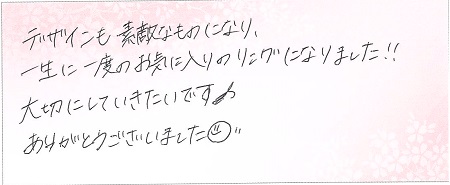 デザインも素敵なものになり、
一生に一度のお気に入りのリングになりました!!
大切にしていきたいです♪
ありがとうございました☺"